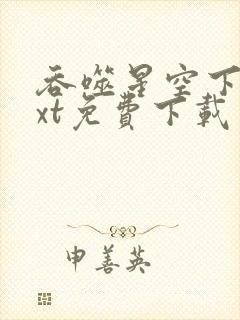 吞噬星空下
xt免費下載
申善英